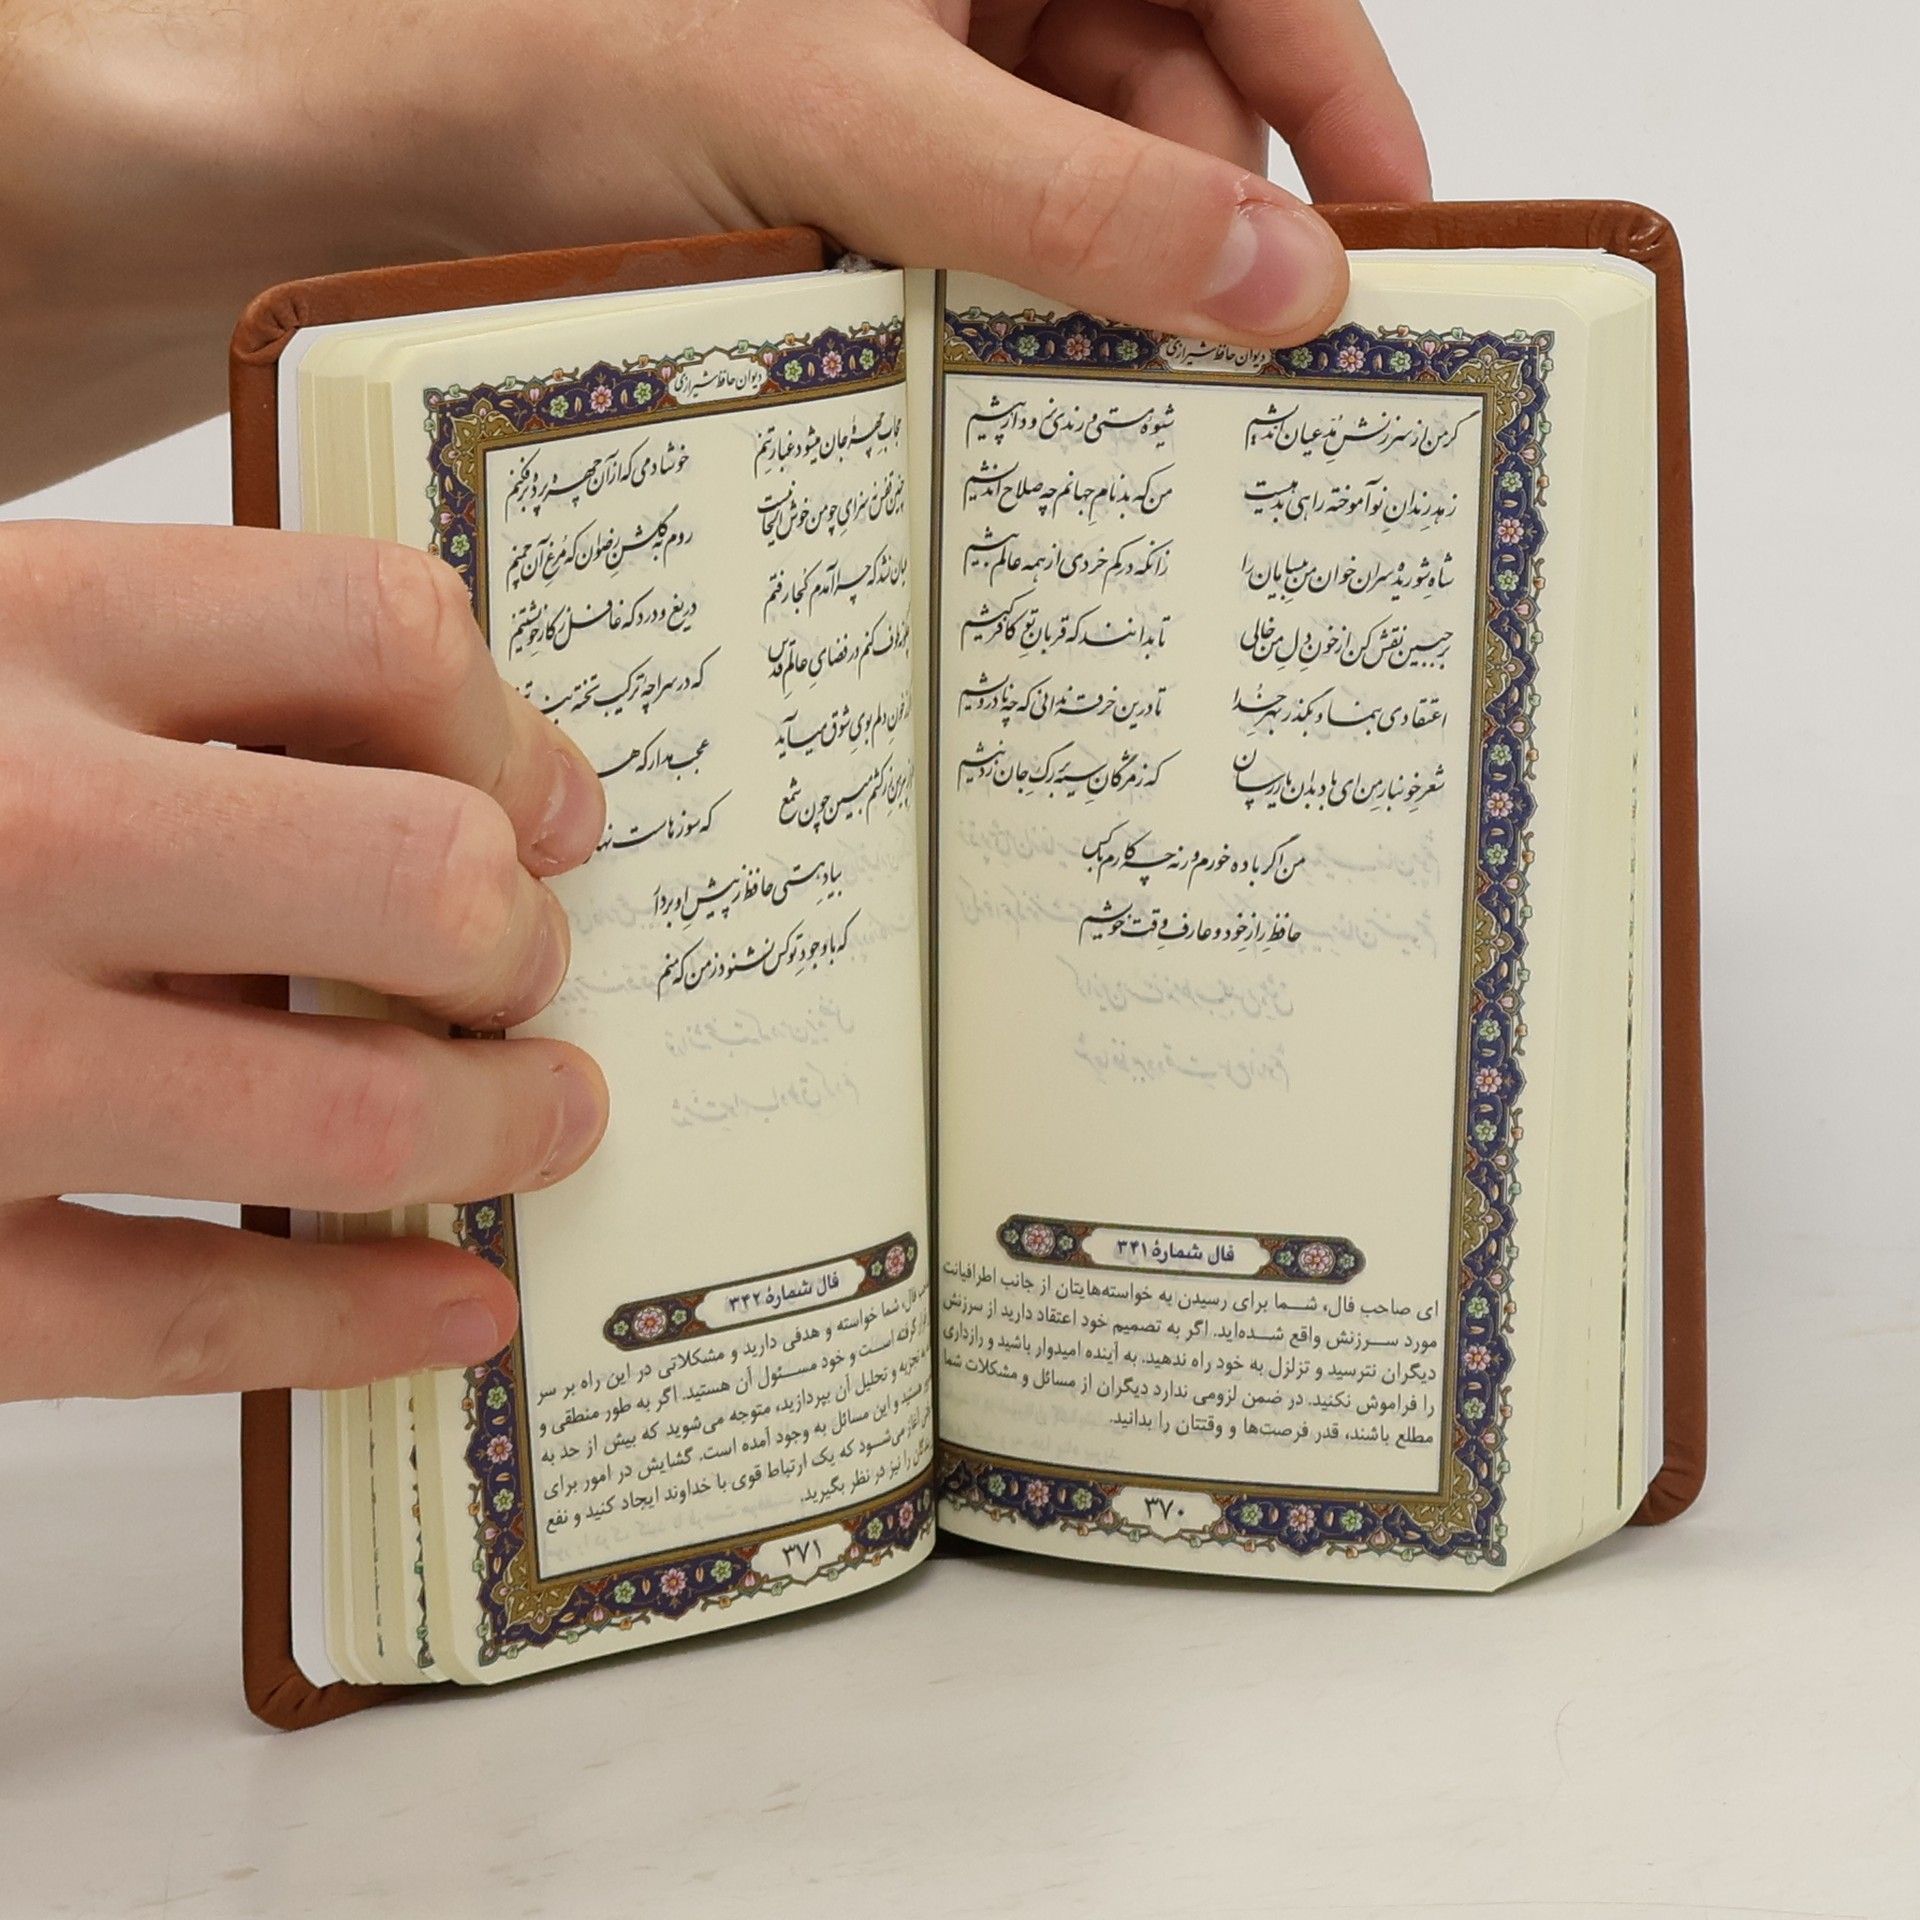 دیوان حافظ شیرازی
گر من از سرزنش مدعیان اندیشم
شیوهٔ مستی و رندی نرود از پیشم
زهد رندان نوآموخته راهی بدهیست
من که بدنام جهانم چه صلاح اندیشم
شاه شوریده سران خوان من بی‌سامان را
زانکه در کم خردی از همه عالم بیشم
بر جبین نقش کن از خون دل من خالی
تا بدانند که قربان تو کافر کیشم
اعتقادی بنما و بگذر بهر خدا
تا درین خرقه ندانی که چه نادرویشم
شعر خونبار من ای باد بدان یار رسان
که ز مژگان سیه بر رگ جان زد نیشم
من اگر باده خورم ورنه چه کارم با کس
حافظ راز خود و عارف وقت خویشم
فال شمارهٔ ۳۴۱
ای صاحب فال، شما برای رسیدن به خواسته‌هایتان از جانب اطرافیانت
مورد سرزنش واقع شده‌اید. اگر به تصمیم خود اعتقاد دارید از سرزنش
دیگران نترسید و تزلزل به خود راه ندهید. به آینده امیدوار باشید و رازداری
را فراموش نکنید. در ضمن لزومی ندارد دیگران از مسائل و مشکلات شما
مطلع باشند، قدر فرصت‌ها و وقتتان را بدانید.
۳۷۰
دیوان حافظ شیرازی
حجاب چهرهٔ جان میشود غبار تنم
خوشا دمی که از آن چهره پرده برفکنم
چنین قفس نه سزای چو من خوش الحانیست
روم به گلشن رضوان که مرغ آن چمنم
عیان نشد که چرا آمدم کجا رفتم
دریغ و درد که غافل ز کار خویشتنم
طوف کنم در فضای عالم قدس
که در سراچهٔ ترکیب تخته بند
خون دلم بوی شوق میآید
عجب مدار که
زرکشم مبین چون شمع
که سوزهاست
بیا و هستی حافظ ز پیش او بردار
که با وجود تو کس نشنود ز من که منم
فال شمارهٔ ۳۴۲
فال، شما خواسته و هدفی دارید و مشکلاتی در این راه بر سر
گرفته است و خود مسئول آن هستید. اگر به طور منطقی و
تجزیه و تحلیل آن بپردازید، متوجه می‌شوید که بیش از حد به
هستید و این مسائل به وجود آمده است. گشایش در امور برای
آغاز می‌شود که یک ارتباط قوی با خداوند ایجاد کنید و نفع
را نیز در نظر بگیرید.
۳۷۱